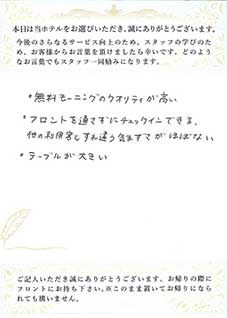 本日は当ホテルをお選びいただき、誠にありがとうございます。
今後のさらなるサービス向上のため、スタッフの学びのた
め、お客様からお言葉を頂けましたら幸いです。どのよう
なお言葉でもスタッフ一同励みになります。
・無料モーニングのクオリティが高い
・フロントを通さずにチェックインできる、
他の利用客とすれ違う気まずさがほぼない
・テーブルが大きい
ご記入いただき誠にありがとうございます。お帰りの際に
フロントにお持ち下さい。※このまま置いてお帰りになら
れても構いません。